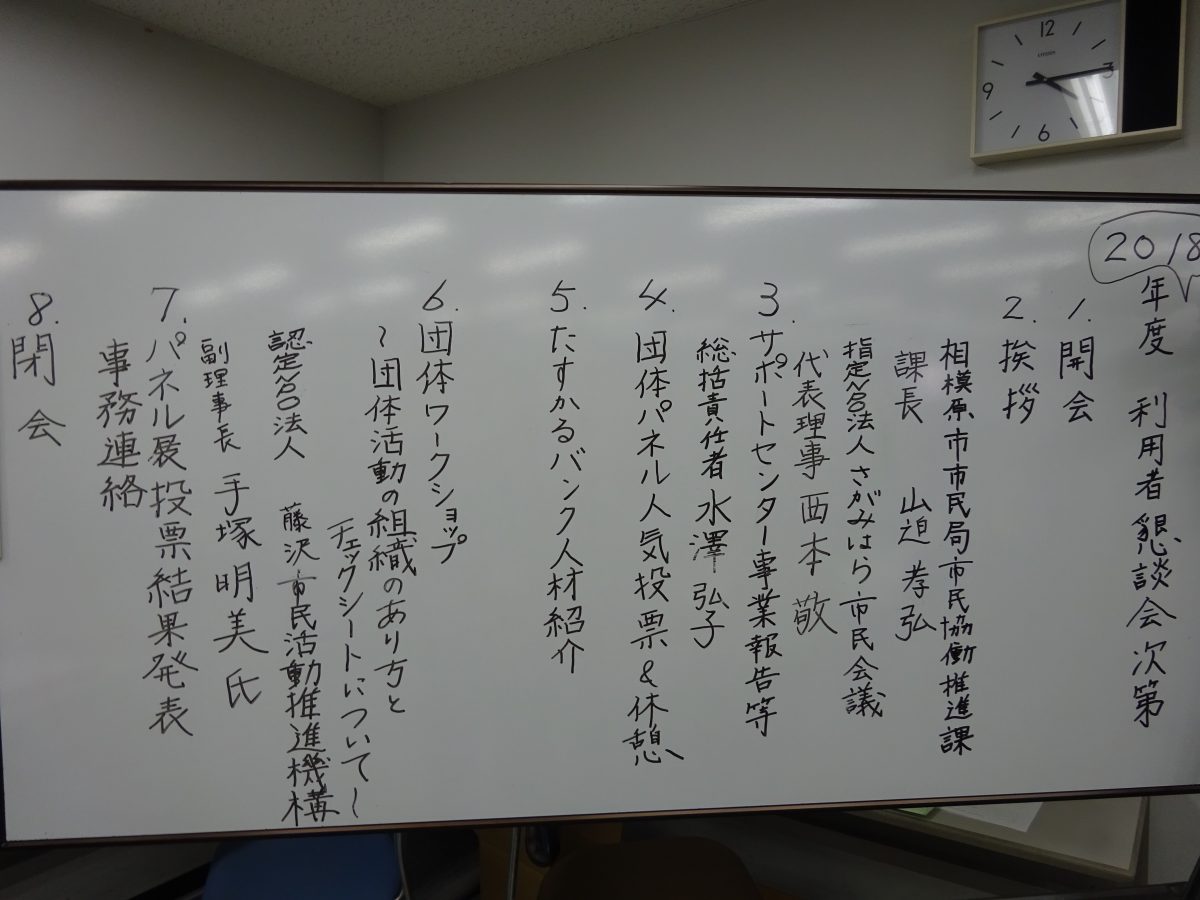 2018年度 利用者懇談会次第
1. 開会
2. 挨拶
相模原市市民局市民協働推進課
課長 山迫 孝弘
指定NPO法人 さがみはら市民会議
代表理事 西本 敬
3. サポートセンター事業報告等
総括責任者 水澤 弘子
4. 団体パネル人気投票&休憩
5. たすかるバンク人材紹介
6. 団体ワークショップ
～団体活動の組織のあり方と
チェックシートについて～
認定NPO法人 藤沢市民活動推進機構
副理事長 手塚 明美 氏
7. パネル展投票結果発表
事務連絡
8. 閉会
12
3
6
9
CITIZEN